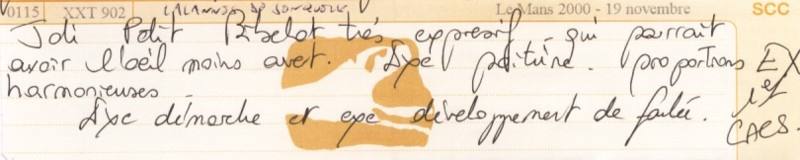 0115 XXT 902 LALANNSA DE SONJOUX Le Mans 2000 - 19 novembre SCC
Joli Petit Bibelot très expressif, qui pourrait
avoir l'oeil moins ouvert. Expe poitrine. proportions EX
harmonieuses. 1er
Expe démarche et expe développement de foulée. CACS.